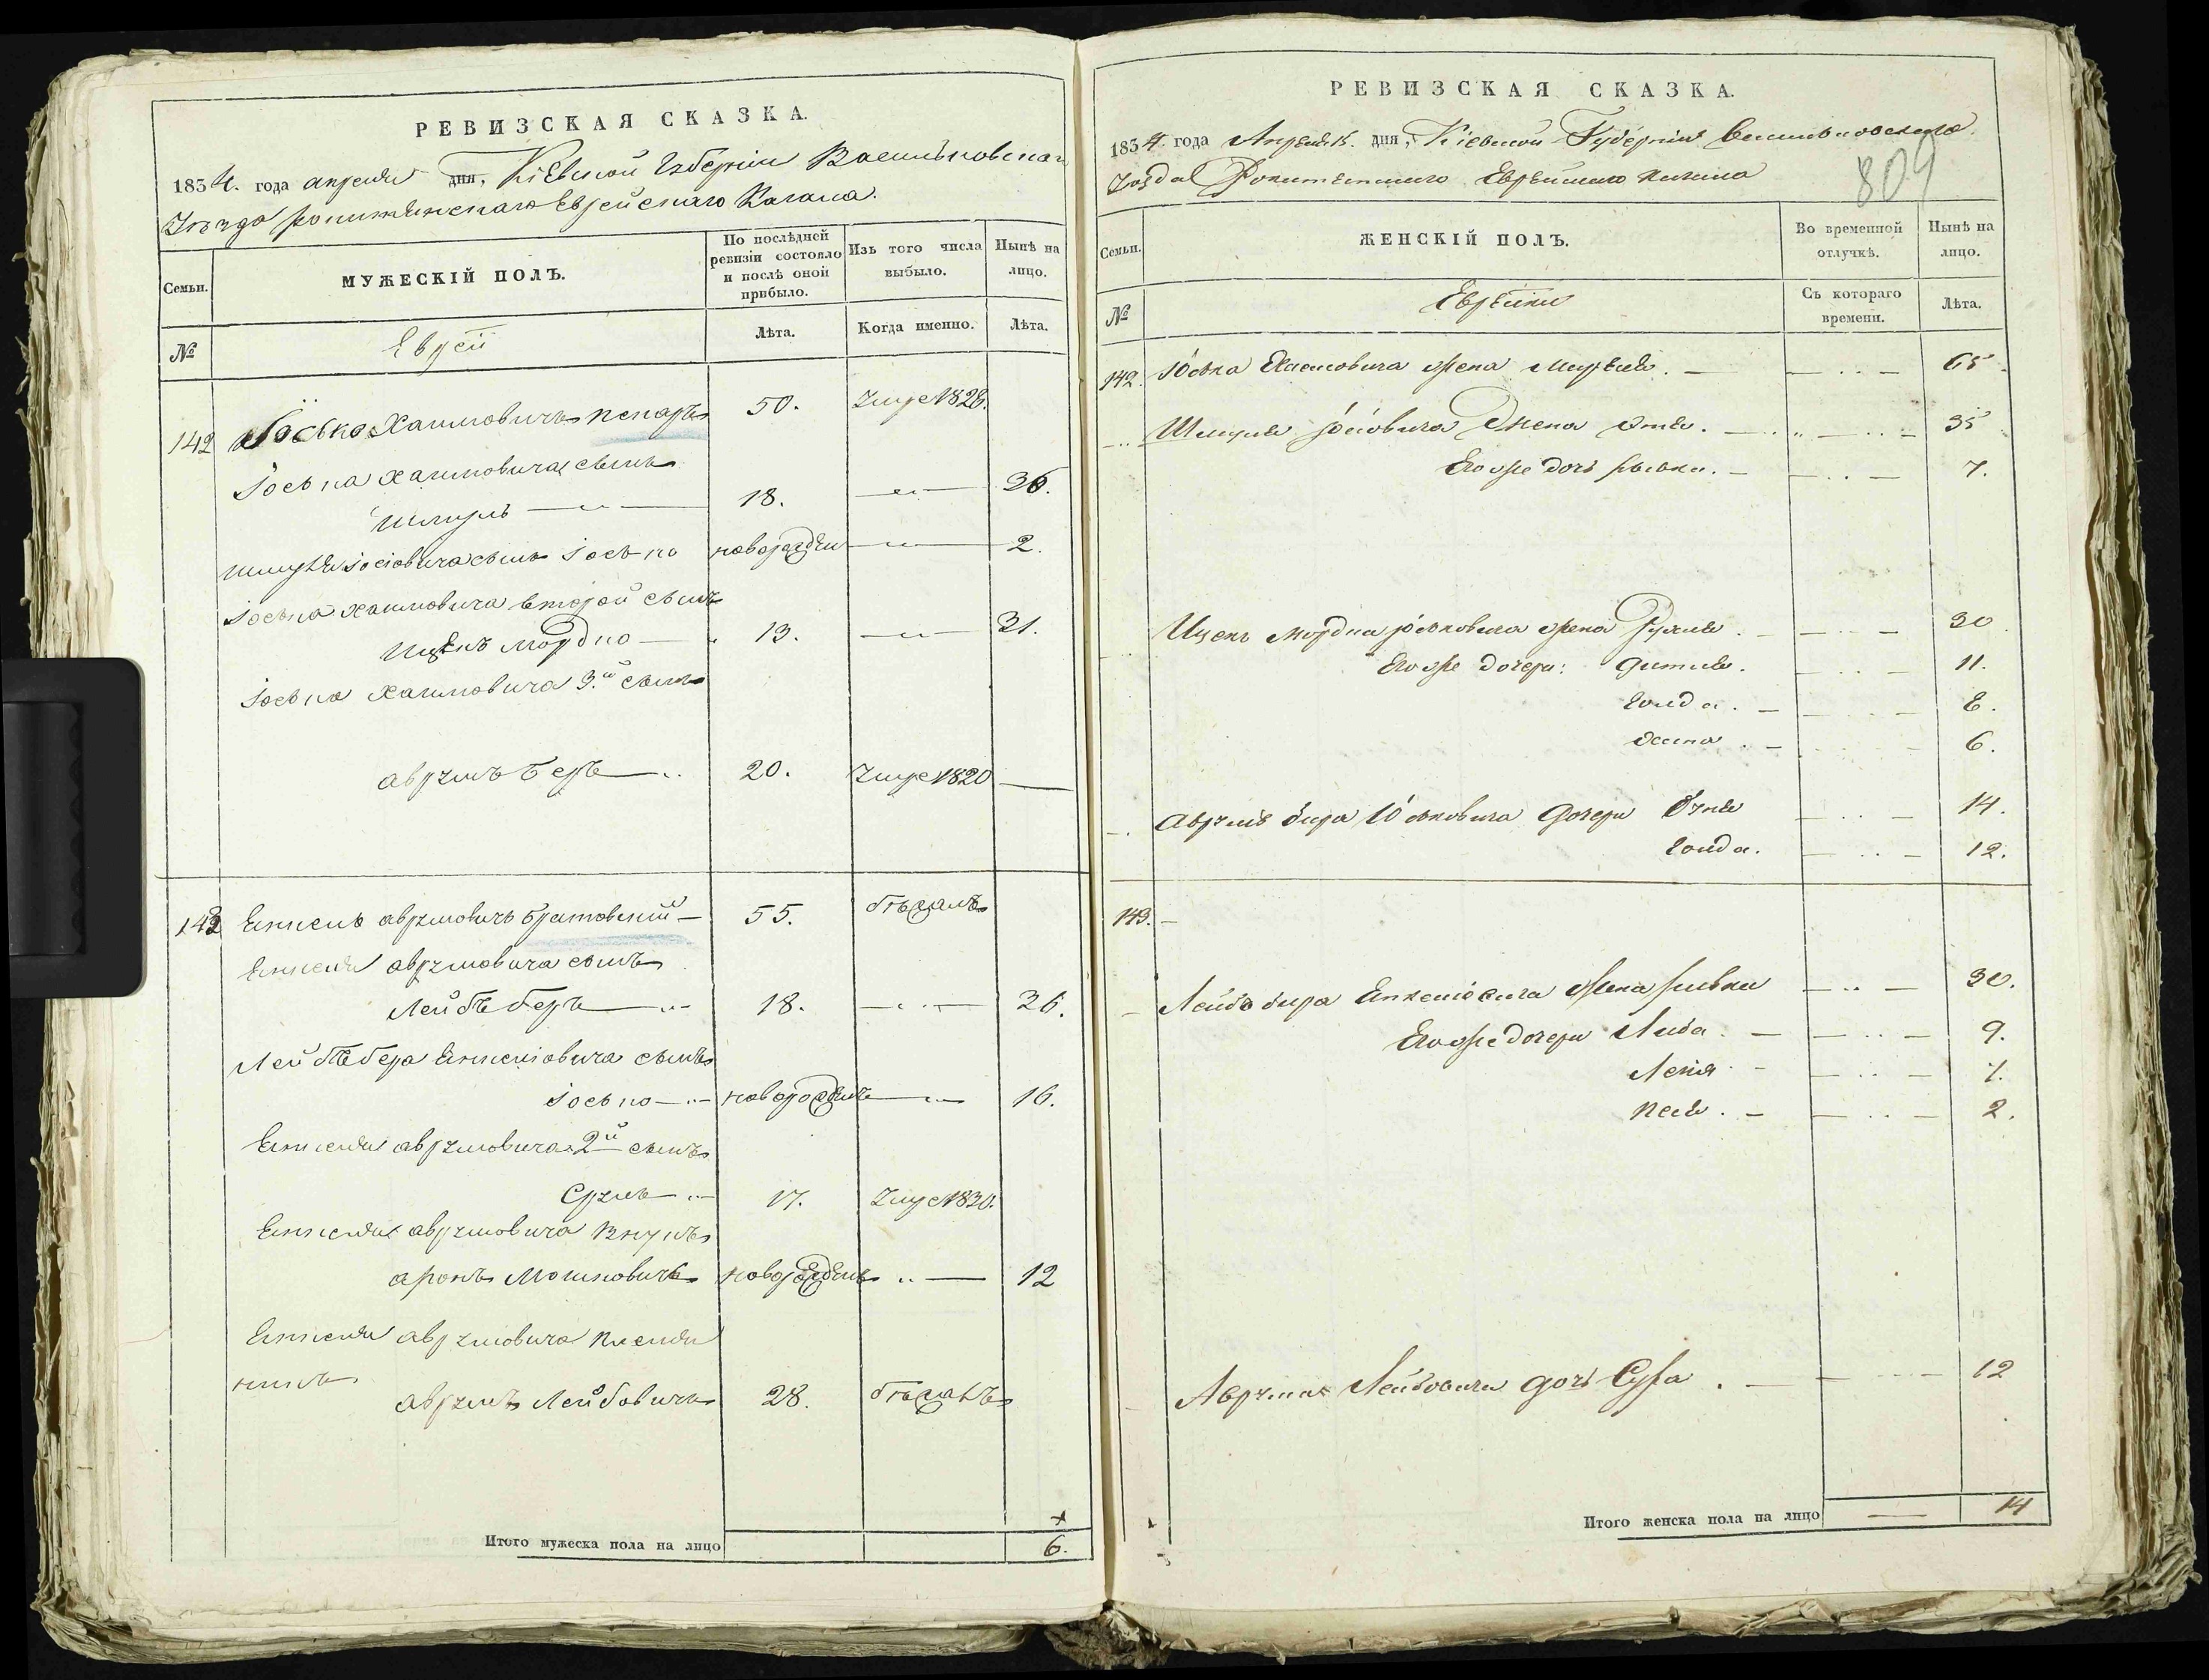 РЕВИЗСКАЯ СКАЗКА.
1834. года апреля дня, Кіевской Губерніи Васильковскаго
Уезда рокитянскаго Еврейскаго Кагала.
Семьи.
МУЖЕСКІЙ ПОЛЪ.
По послѣдней ревизіи состояло и послѣ оной прибыло.
Изъ того числа выбыло.
Нынѣ на лицо.
№
Евреи
Лѣта.
Когда именно.
Лѣта.
142 Іоська Хаимовичъ 50. умре 1828.
Іоська Хаимовича сынъ
Шмуль 18. 36.
Шмуля Іосіовича сынъ Іосько новорожден 2.
Іоська Хаимовича второй сынъ
Ицекъ Мордко 13. 31.
Іоська Хаимовича 3й сынъ
Аврумъ Беръ 20. умре 1820
143 Енкель Аврумовичъ Братовскій 55. бѣжалъ
Енкеля Аврумовича сынъ
Лейбъ беръ 18. 36.
Лейбъ бера Енкеліовича сынъ
Іосько новорожденъ 16.
Енкеля Аврумовича 2й сынъ
Сруль 17. умре 1830.
Енкеля Аврумовича внукъ
Аронъ Мошковичъ новорожденъ 12
Енкеля Аврумовича племян
никъ
Аврумъ Лейбовичъ 28. бѣжалъ
Итого мужеска пола на лицо 6.
РЕВИЗСКАЯ СКАЗКА.
1834. года Апреля дня, Кіевской Губерніи Васильковскаго
Уезда Рокитянскаго Еврейскаго Кагала
809
Семьи.
ЖЕНСКІЙ ПОЛЪ.
Во временной отлучкѣ.
Нынѣ на лицо.
№
Еврейки
Съ котораго времени.
Лѣта.
142. Юська Хаимовича жена 65.
Шмуля Іосіовича жена Этля. 35
Его же дочь Рывка. 7.
Ицекъ Мордка Юсковича жена Рухля. 30
Его же дочери: Дитля. 11.
Голда. 8.
Хасна. 6.
Аврумъ бира Юсковича дочери 14.
Голда. 12.
143.
Лейбъ бира Енкеліовича жена Рывка 30.
Его же дочери Либа. 9.
Лея 7.
Песя. 2.
Аврума Лейбовича дочь Сура. 12
Итого женска пола на лицо 14